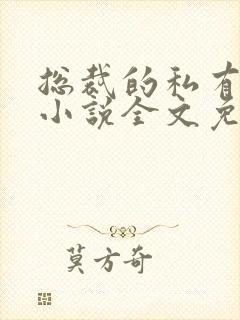 总裁的私有
小说全文免
莫方奇